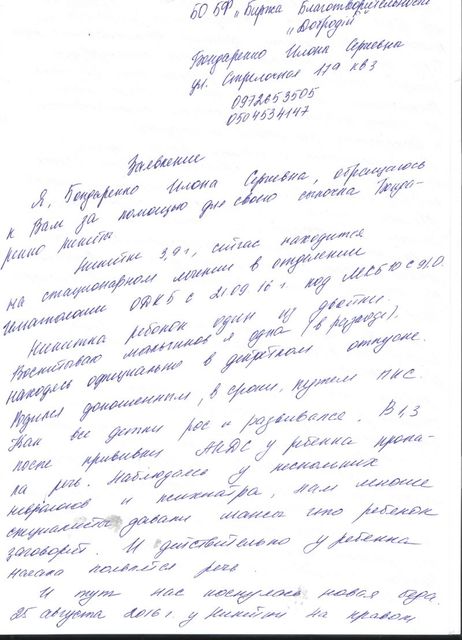 БО БФ „Биржа Благотворительности
„Добродій"
Бондаренко Илона Сергиевна
ул. Стрелочная 119 кв 3
0972653505
0504534147
Заявление
Я, Бондаренко Илона Сергиевна, обращаюсь
к Вам за помощью для своего сыночка Бонда-
ренко Никиты
Никитке 3,9 г, сейчас находится
на стационарном лечении в отделении
гематологии ОДКБ с 21 09 16 г под МКБ 10 С 91.0.
Никитка ребенок один из двойни.
Воспитываю мальчиков я одна (в разводе),
нахожусь официально в декретном отпуске.
Родился доношенным, в сроки, путем ПКС.
Как все детки рос и развивался. В 1,3
после прививки АКДС у ребенка пропа-
ла речь. Наблюдался у нескольких
неврологов и психиатра, нам многие
специалисты давали шансы что ребенок
заговорит. И действительно у ребенка
начала появлятся речь.
И тут нас коснулась новая беда
25 августа 2016 г у Никиты на правом